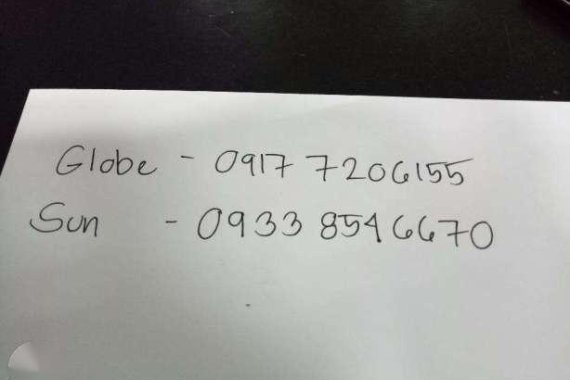 Globe - 0917 7206155
Sun - 0933 8546670